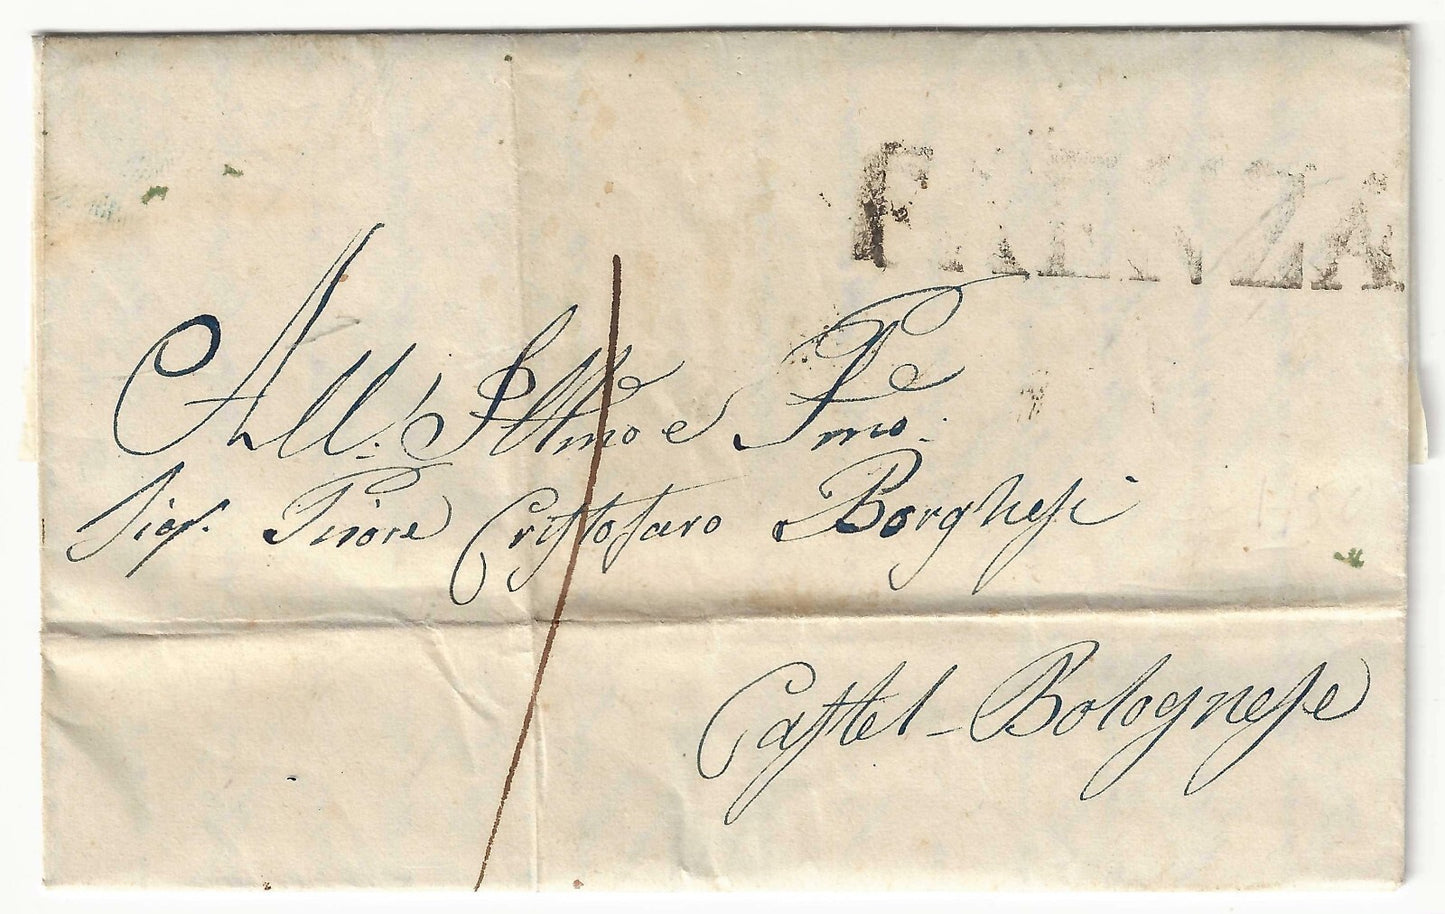 FAENZA
All.' Illmo e Pne Pmo:
Sigr. Priore Cristofaro Borghesi
Castel-Bolognese